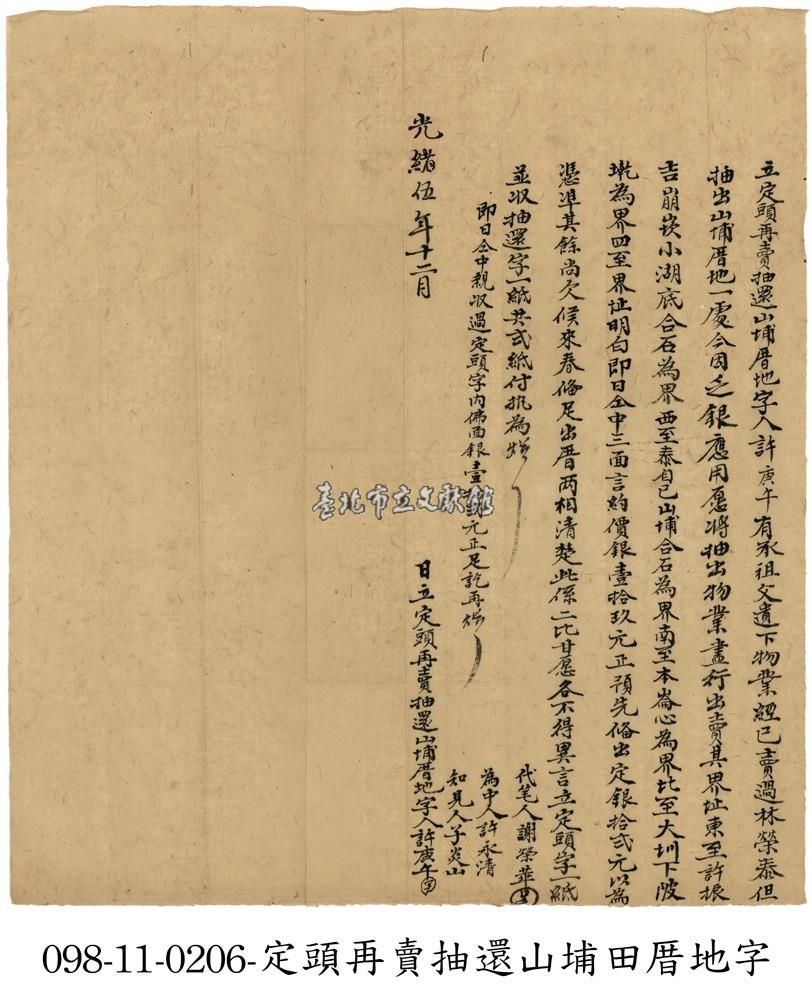 立定頭再賣抽還山埔厝地字人許庚午有承祖父遺下物業經已賣過林榮泰但
抽出山埔厝地一處今因乏銀應用愿將抽出物業盡行出賣其界址東至許振
吉崩崁小湖底合石為界西至泰自己山埔合石為界南至本崙心為界北至大圳下陂
墘為界四至界址明白即日仝中三面言約價銀壹拾玖元正預先俻出定銀拾弍元以為
憑準其餘尚欠候來春俻足出厝兩相清楚此係二比甘愿各不得異言立定頭字一紙
並收抽還字一紙共弍紙付执為炤
即日仝中親收過定頭字內佛面銀壹元正足訖再炤
代笔人謝榮華
為中人許永清
知見人子炎山
光緒伍年十二月 日立定頭再賣抽還山埔厝地字人許庚午
臺北市立文獻館
098-11-0206-定頭再賣抽還山埔田厝地字